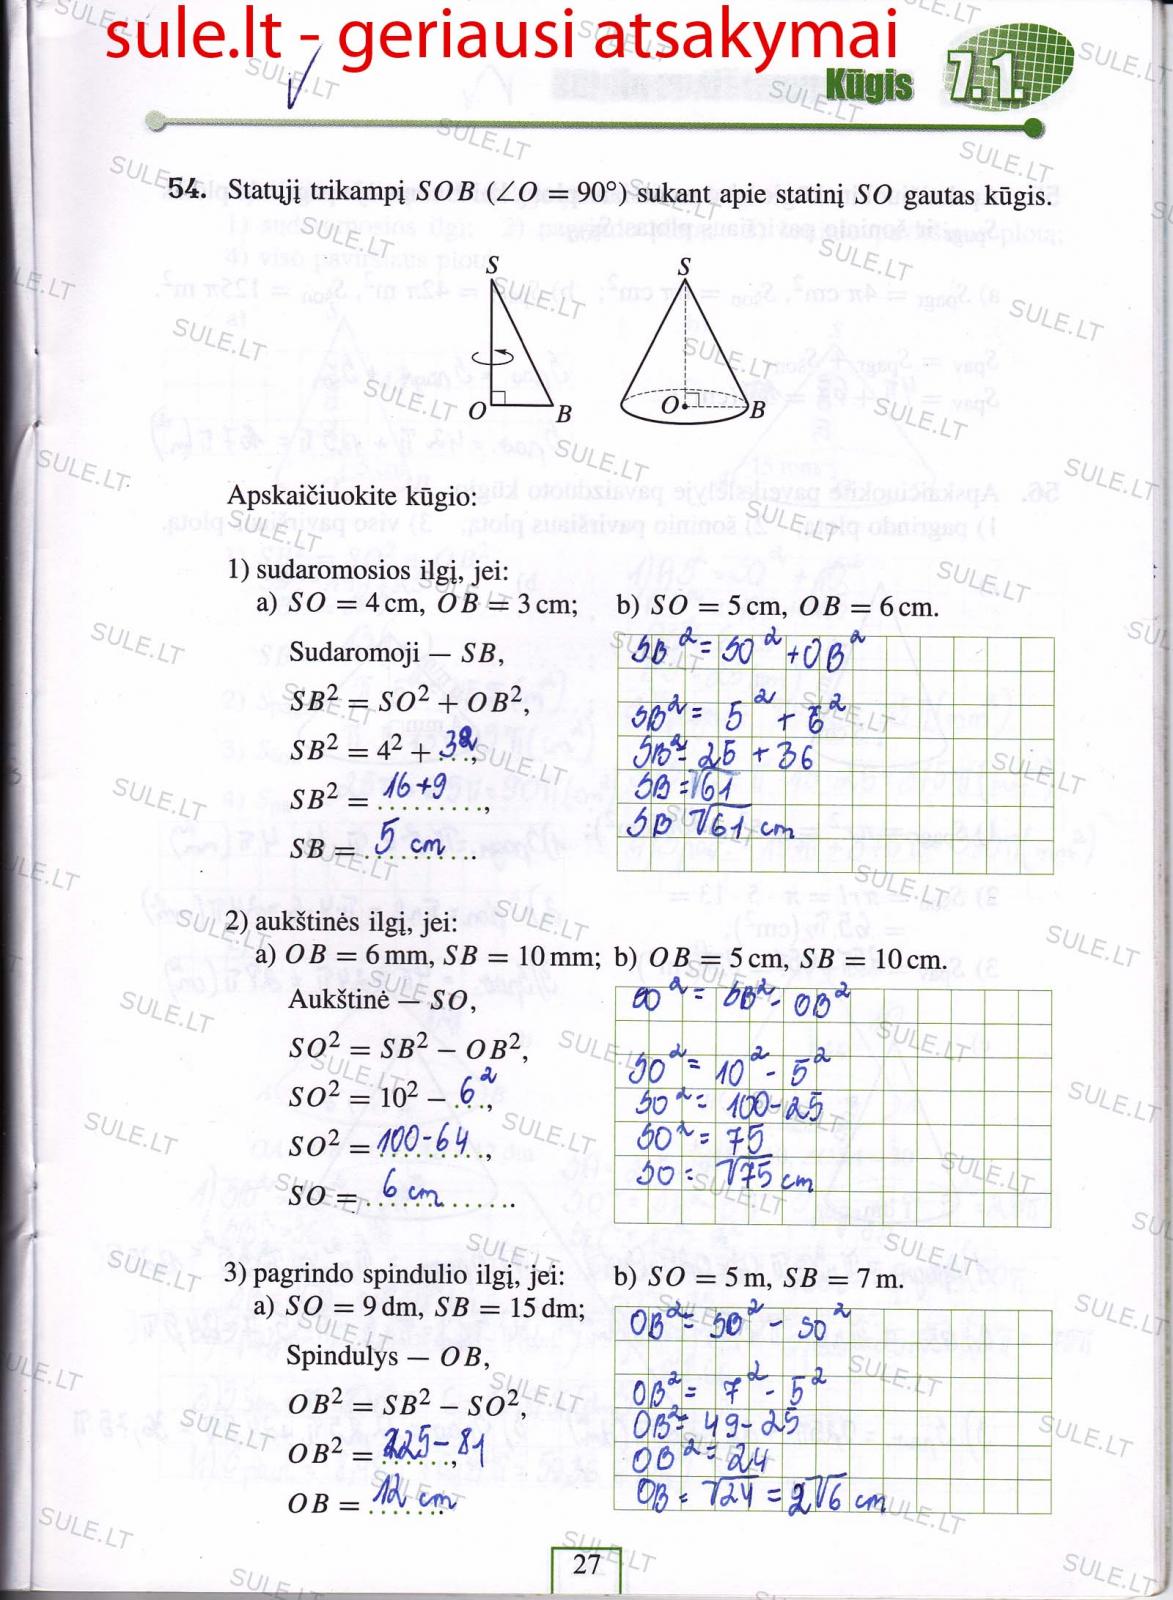 sule.lt - geriausi atsakymai
Kūgis 7.1.
54. Statųjį trikampį SOB (∠O = 90°) sukant apie statinį SO gautas kūgis.
S
O
B
S
O
B
Apskaičiuokite kūgio:
1) sudaromosios ilgį, jei:
a) SO = 4 cm, OB = 3 cm;
Sudaromoji — SB,
SB² = SO² + OB²,
SB² = 4² + 3²,
SB² = 16+9,
SB = 5 cm.
b) SO = 5 cm, OB = 6 cm.
SB² = SO² + OB²
SB² = 5² + 6²
SB² = 25 + 36
SB = √61
SB √61 cm
2) aukštinės ilgį, jei:
a) OB = 6 mm, SB = 10 mm;
Aukštinė — SO,
SO² = SB² − OB²,
SO² = 10² − 6²,
SO² = 100-64,
SO = 6 cm.
b) OB = 5 cm, SB = 10 cm.
SO² = SB² - OB²
SO² = 10² - 5²
SO² = 100-25
SO² = 75
SO = √75 cm
3) pagrindo spindulio ilgį, jei:
a) SO = 9 dm, SB = 15 dm;
Spindulys — OB,
OB² = SB² − SO²,
OB² = 225-81,
OB = 12 cm.
b) SO = 5 m, SB = 7 m.
OB² = SB² - SO²
OB² = 7² - 5²
OB² = 49-25
OB² = 24
OB = √24 = 2√6 cm
27